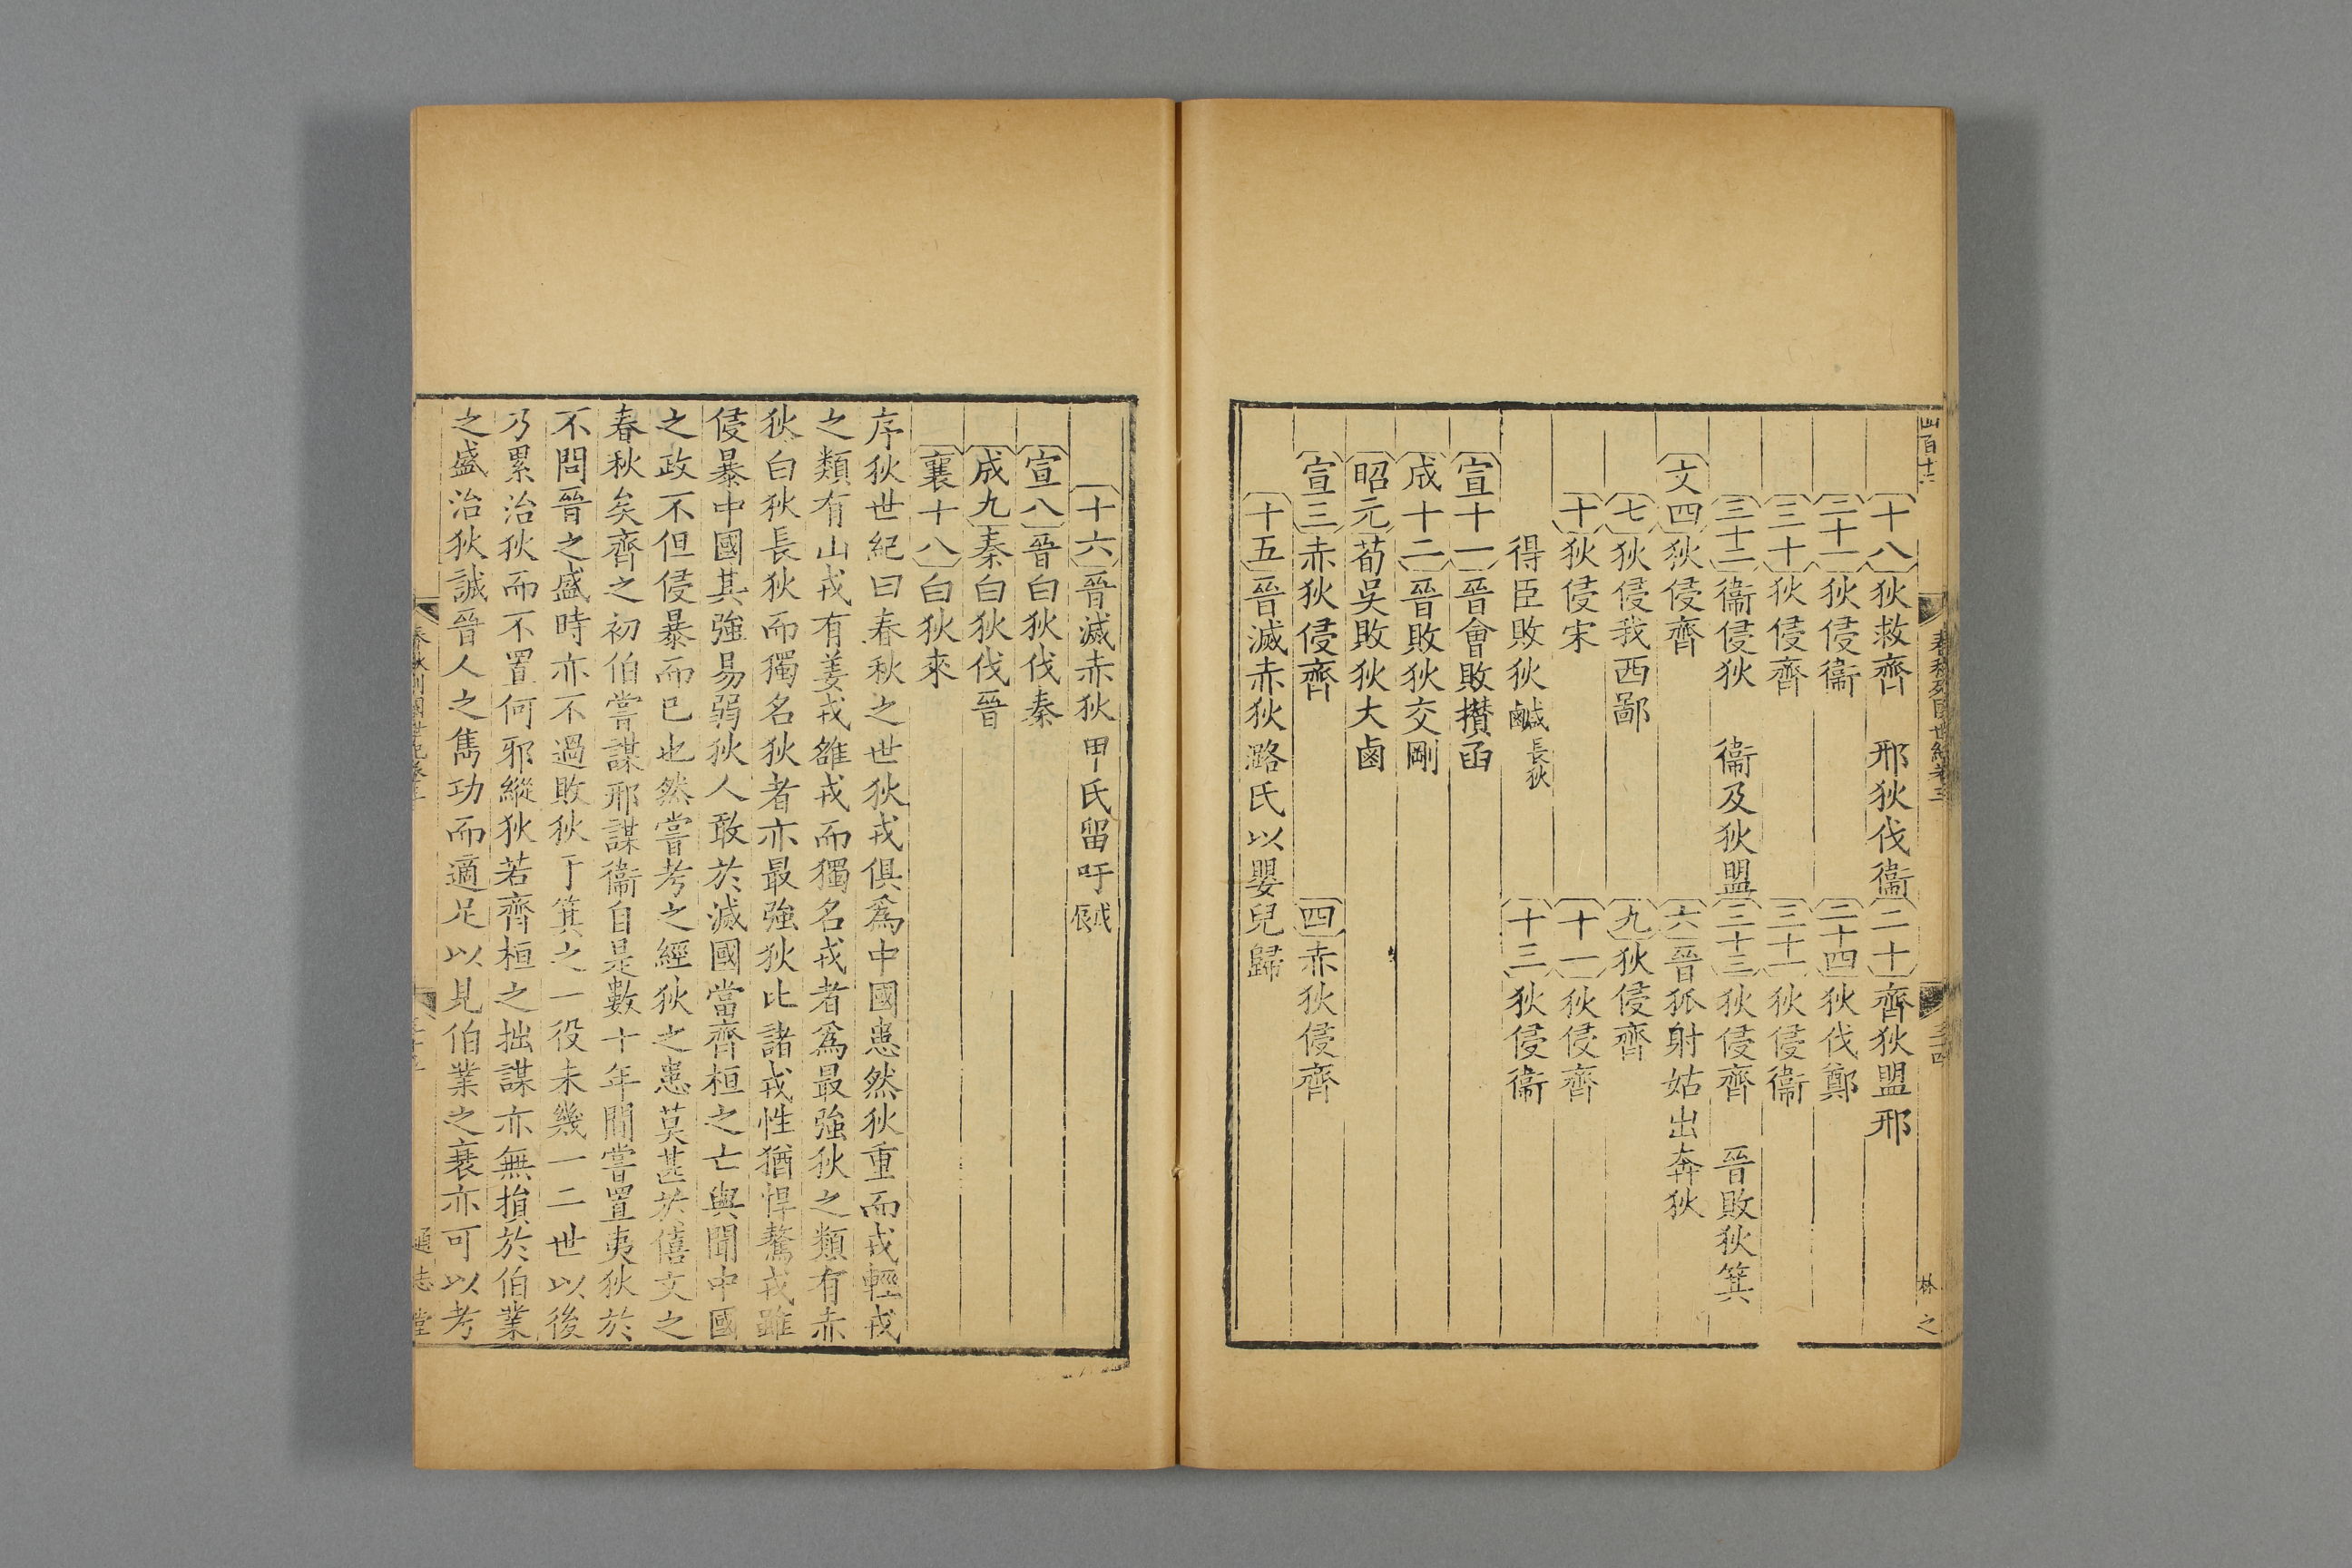 春秋列國世紀卷三
三十四
林之
十八狄救齊　邢狄伐衞二十齊狄盟邢
二十一狄侵衞二十四狄伐鄭
三十狄侵齊三十一狄侵衞
三十二衞侵狄　衞及狄盟三十三狄侵齊　晉敗狄箕
文四狄侵齊六晉狐射姑出奔狄
七狄侵我西鄙九狄侵齊
十狄侵宋十一狄侵齊
得臣敗狄鹹長狄十三狄侵衞
宣十一晉會敗攅函
成十二晉敗狄交剛
昭元荀吳敗狄大鹵
宣三赤狄侵齊四赤狄侵齊
十五晉滅赤狄潞氏以嬰兒歸
十六晉滅赤狄甲氏留吁戍辰
宣八晉白狄伐秦
成九秦白狄伐晉
襄十八白狄來
序狄世紀曰春秋之世狄戎俱爲中國患然狄重而戎輕戎
之類有山戎有姜戎雒戎而獨名戎者爲最強狄之類有赤
狄白狄長狄而獨名狄者亦最強狄比諸戎性猶悍驁戎雖
侵暴中國其強易弱狄人敢於滅國當齊桓之亡與聞中國
之政不但侵暴而已也然嘗考之經狄之患莫甚於僖文之
春秋矣齊之初伯嘗謀邢謀衞自是數十年間嘗置夷狄於
不問晉之盛時亦不過敗狄于箕之一役未幾一二世以後
乃累治狄而不置何邪縱狄若齊桓之拙謀亦無損於伯業
之盛治狄誠晉人之雋功而適足以見伯業之衰亦可以考
春秋列國世紀卷三
通志堂